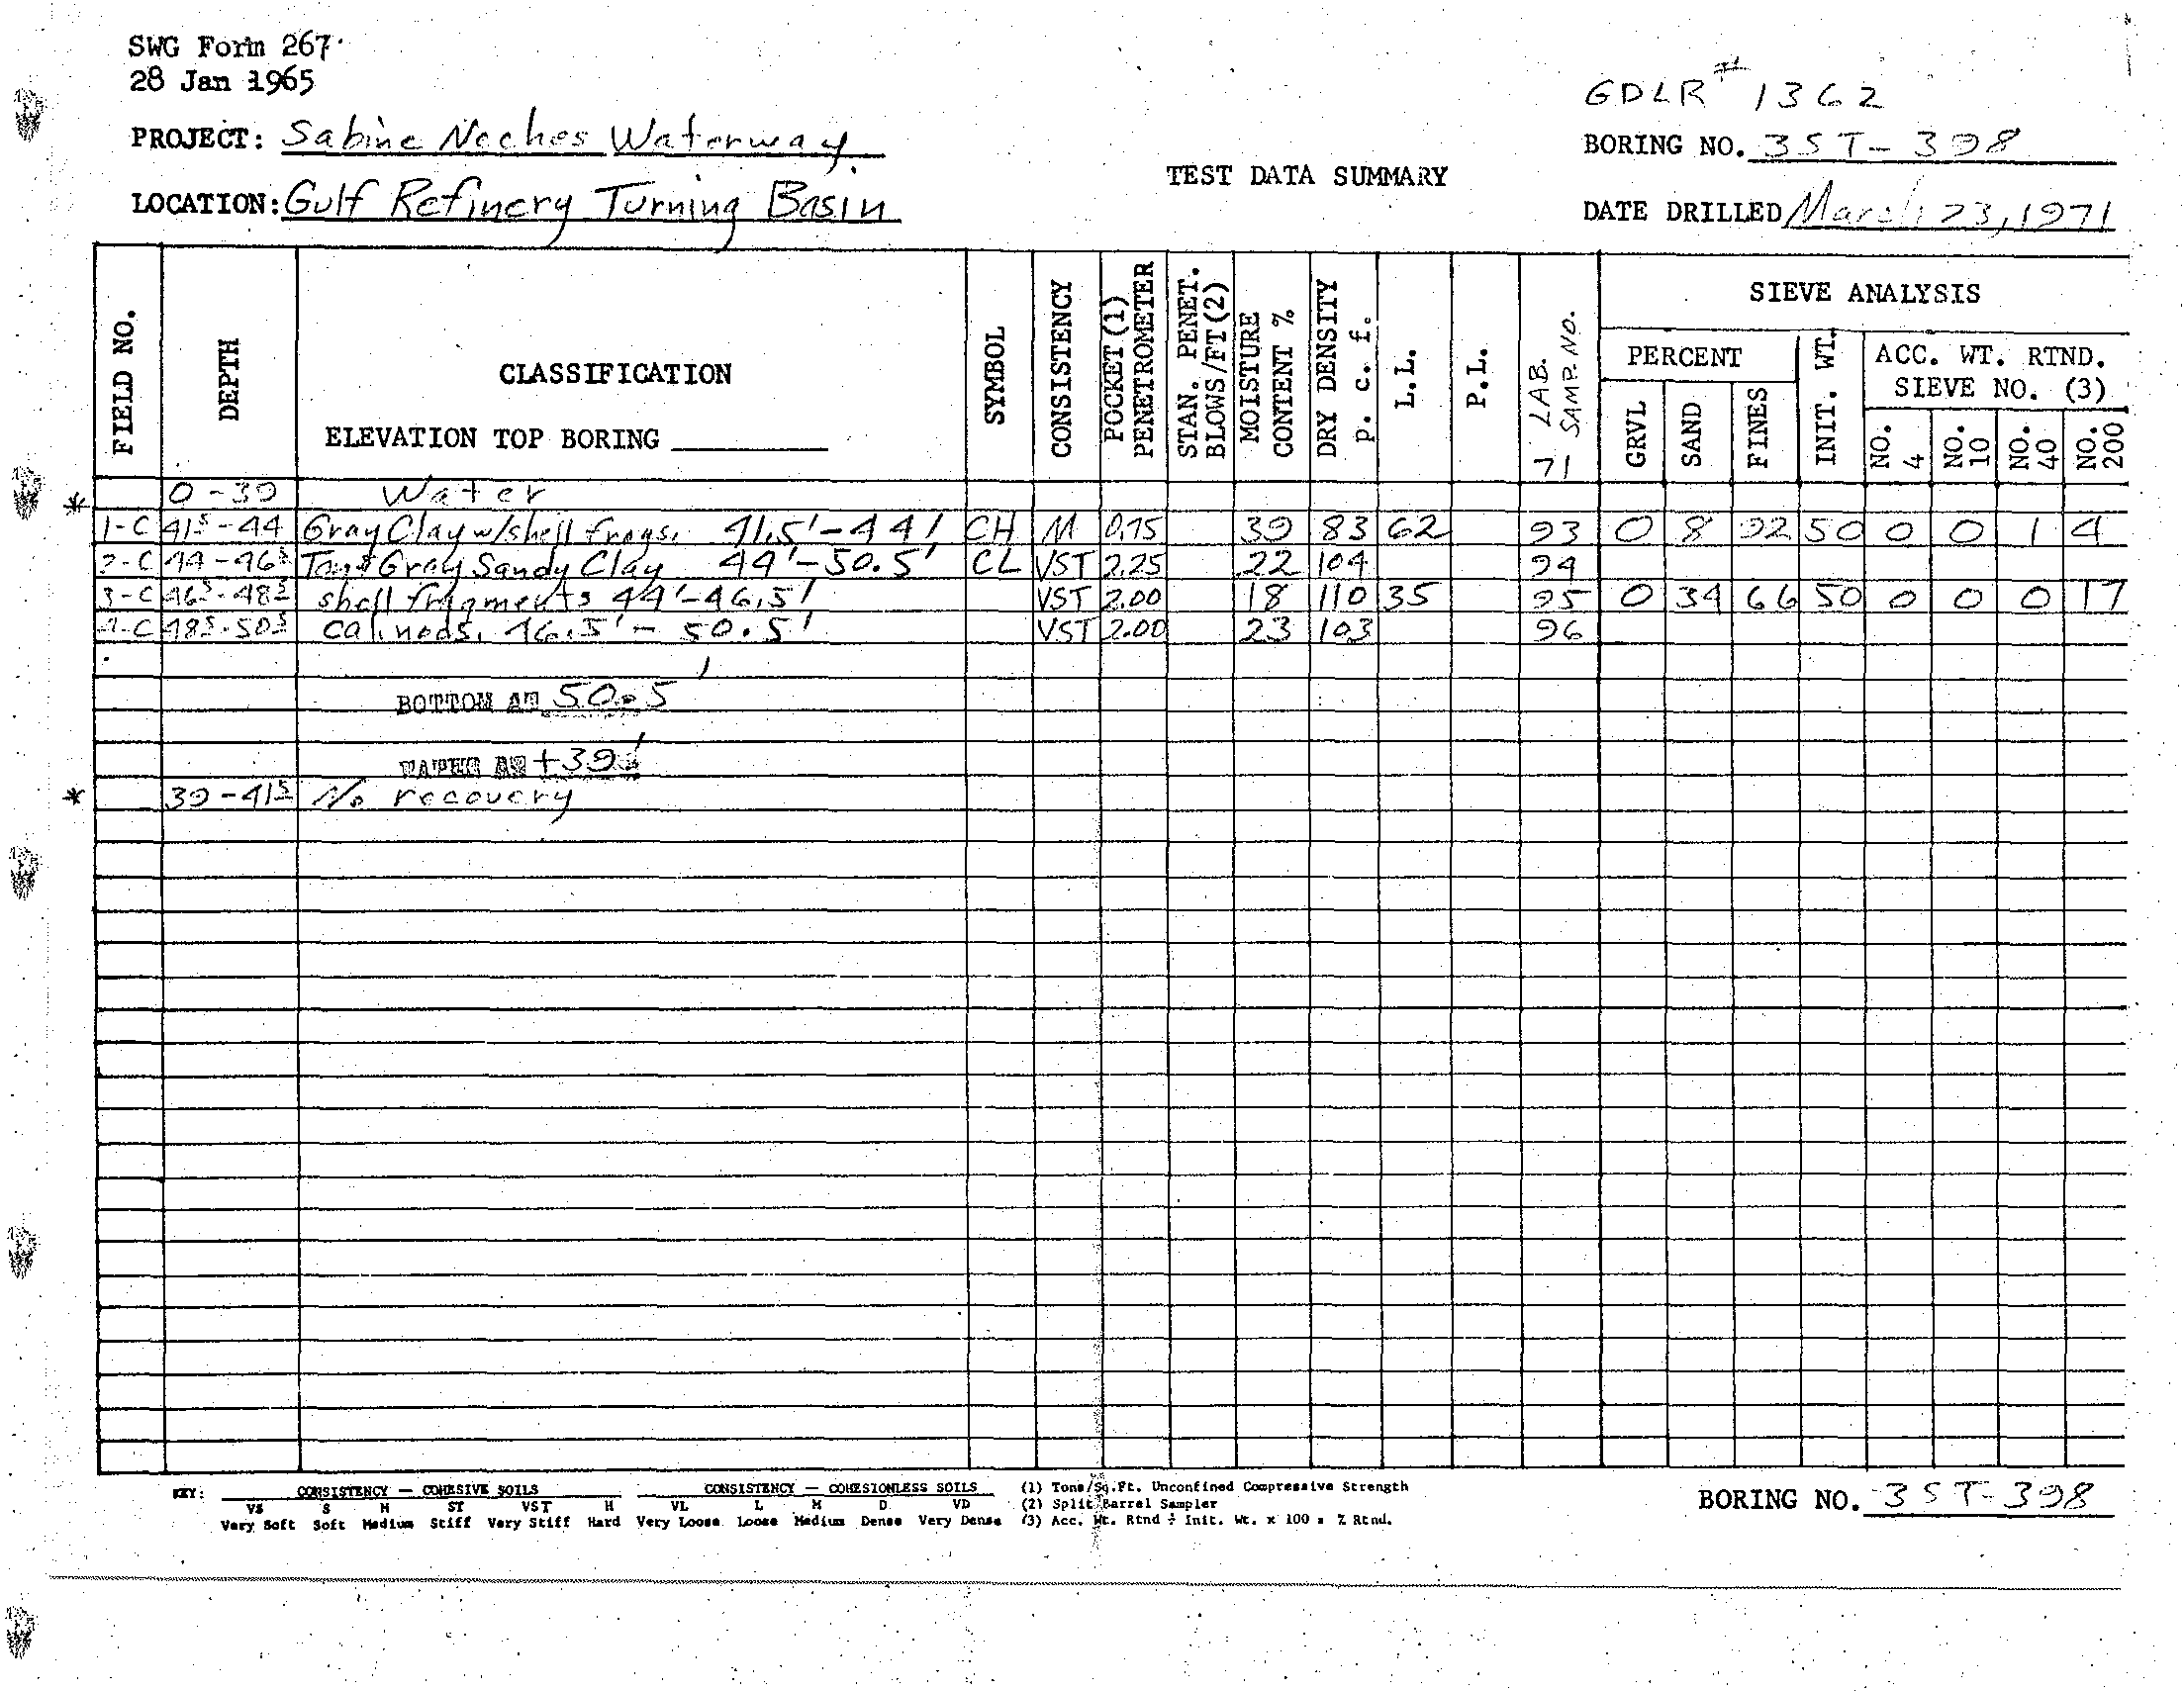 SWG Form 267
28 Jan 1965
GDLR # 1362
PROJECT: Sabine Neches Waterway
BORING NO. 3ST-398
TEST DATA SUMMARY
LOCATION: Gulf Refinery Turning Basin
DATE DRILLED March 23, 1971
FIELD NO. DEPTH CLASSIFICATION SYMBOL CONSISTENCY POCKET (1) PENETROMETER STAN. PENET. BLOWS/FT (2) MOISTURE CONTENT % DRY DENSITY p. c. f. L.L. P.L. 71 LAB. SAMP. NO. SIEVE ANALYSIS
PERCENT INIT. WT. ACC. WT. RTND. SIEVE NO. (3)
GRVL SAND FINES NO. 4 NO. 10 NO. 40 NO. 200
ELEVATION TOP BORING
* 0-39 Water
1-C 41⁵-44 Gray Clay w/shell frags. 41.5'-44' CH M 0.75 39 83 62 93 0 8 92 50 0 0 1 4
2-C 44-46⁵ Tan & Gray Sandy Clay 44'-50.5' CL VST 2.25 22 104 94
3-C 46⁵-48⁵ shell fragments 44'-46.5' VST 2.00 18 110 35 95 0 34 66 50 0 0 0 17
4-C 48⁵-50⁵ cal. nods. 46.5'-50.5' VST 2.00 23 103 96
BOTTOM AT 50.5'
WATER AT +39'
* 39-41⁵ No recovery
KEY: CONSISTENCY — COHESIVE SOILS CONSISTENCY — COHESIONLESS SOILS (1) Tons/Sq.Ft. Unconfined Compressive Strength
VS S M ST VST H VL L M D VD (2) Split Barrel Sampler
Very Soft Soft Medium Stiff Very Stiff Hard Very Loose Loose Medium Dense Very Dense (3) Acc. Wt. Rtnd ÷ Init. Wt. x 100 = % Rtnd.
BORING NO. 3ST-398